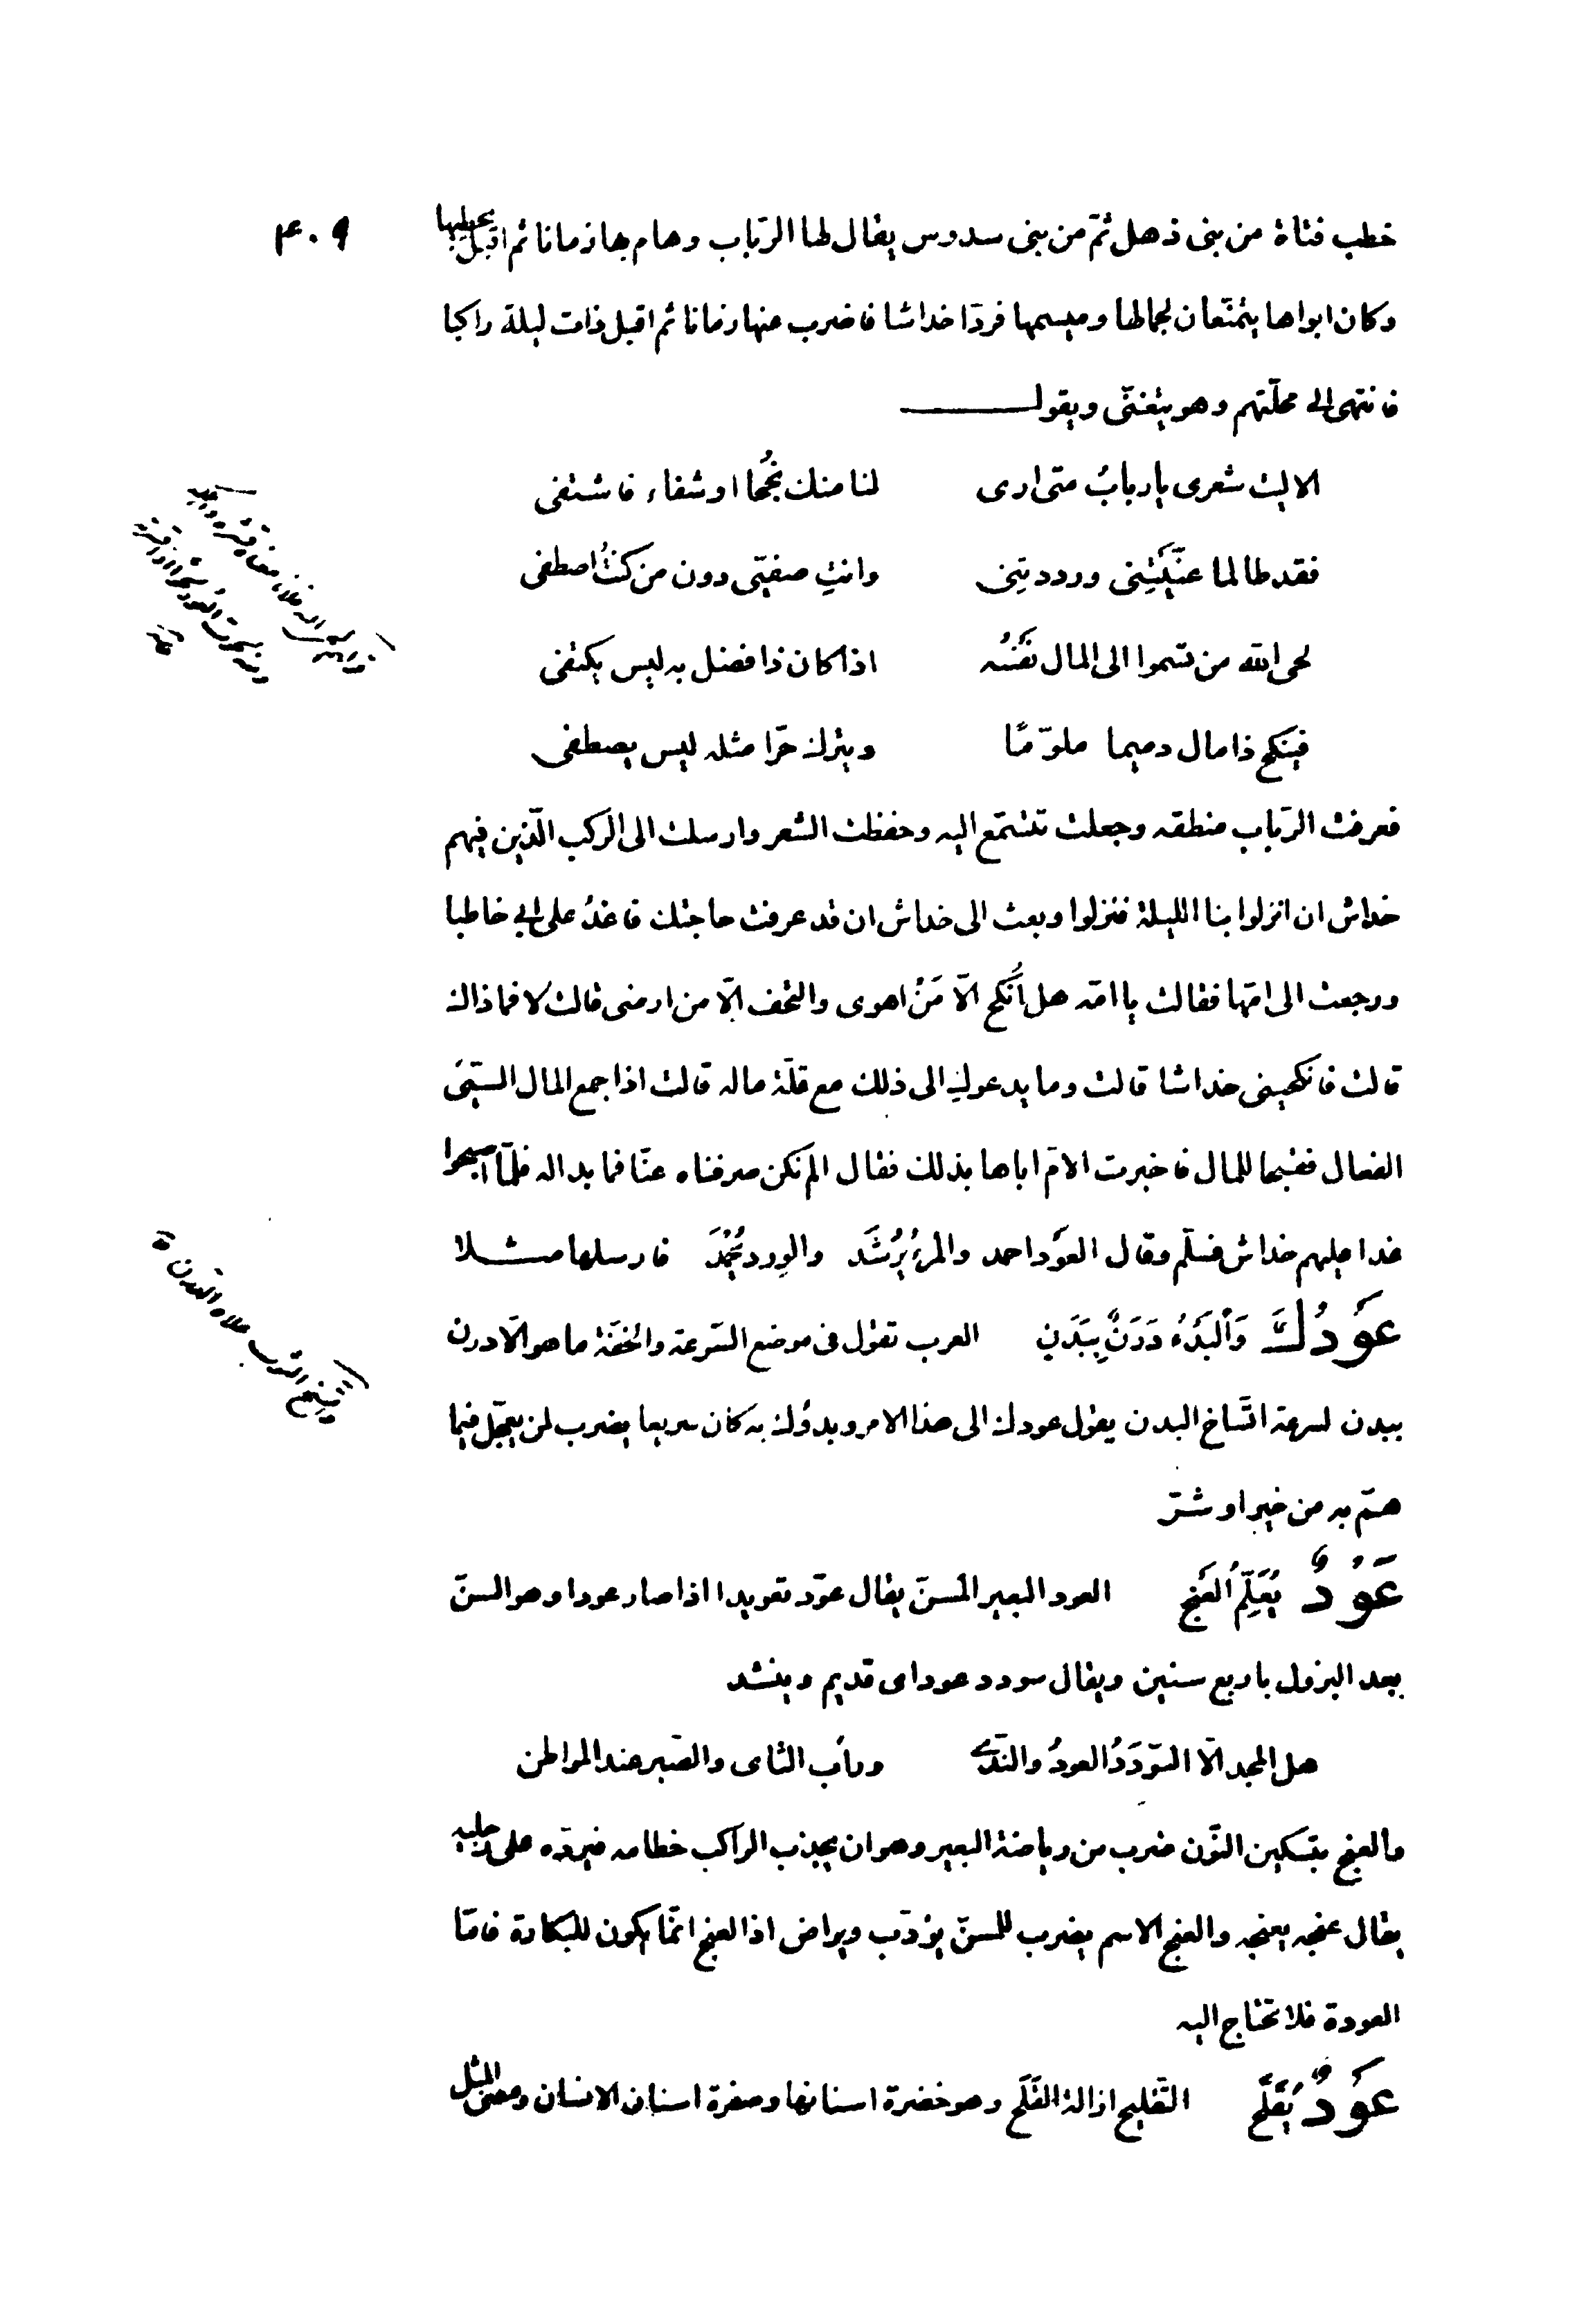 ۴۰۹
خطب فتاة من بنی ذهل ثمّ من بنی سدوس یقال لها الرّباب وهام بها زمانا ثم اقبل یخطبها
وکان ابواها یتمنّعان لجمالها ومیسمها فردّا خداشا فاضرب عنها زمانا ثم اقبل ذات لیلة راکبا
فانتهی الی محلّتهم وهو یتغنّی ویقول
الا لیت شعری یا ربابُ متی اری لنا منك نُجحا او شفاء فاشتفی
فقد طالما عنّیتِنی ورددتِنی وانتِ صفیّی دون من کنتُ اصطفی
لحی الله من تسموا الی المال نفسُه اذا کان ذا فضل به لیس یکتفی
فینکح ذا مال دمیما ملوّمًا ویترك حرّا مثله لیس یصطفی
فعرفت الرّباب منطقه وجعلت تتسمّع الیه وحفظت الشعر وارسلت الی الرکب الّذین فیهم
خداش ان انزلوا بنا اللیلة فنزلوا وبعث الی خداش ان قد عرفت حاجتك فاغدُ علی ابی خاطبا
ورجعت الی امّها فقالت یا امّه هل اُنکح الّا مَنْ اهوی والتحف الّا من ارضی قالت لا فما ذاك
قالت فانکحینی خداشا قالت وما یدعوكِ الی ذلك مع قلّة ماله قالت اذا جمع المال السیّئ
الفعال فقبحا للمال فاخبرت الامّ اباها بذلك فقال الم نکن صرفناه عنّا فما بدا له فلمّا اصبحوا
غدا علیهم خداش فسلّم وقال العوْد احمد والمرءُ یُرْشَد والوِرد یُحْمَد فارسلها مثلا
عَوْدُكَ وَالْبَدْءُ دَرَنٌ بِبَدَنٍ العرب تقول فی موضع السّرعة والخفّة ما هو الّا درن
ببدن لسرعة اتّساخ البدن یقول عودك الی هذا الامر وبدؤك به کان سریعا یضرب لمن یعجّل فیما
همّ به من خیر او شرّ
عَوْدٌ یُعَلَّمُ العَنْج العود البعیر المُسنّ یقال عوّد تعویدا اذا صار عودا وهو السنّ
بعد البزول باربع سنین ویقال سودد عود ای قدیم وینشد
هل المجد الّا السّودَدُ العودُ والنّدی ورأب الثای والصّبر عند المواطن
والعنج بتسکین النّون ضرب من ریاضة البعیر وهو ان یجذب الراکب خطامه فیردّه علی رجلیه
یقال عنجه یعنجه والعنج الاسم یضرب للمسنّ یؤدّب ویراض اذ العنج انّما یکون للبکارة فامّا
العودة فلا تحتاج الیه
عَوْدٌ یُقَلَّح التّقلیح ازالة القَلَح وهو خضرة اسنانها وصفرة اسنان الانسان ومعنی المثل